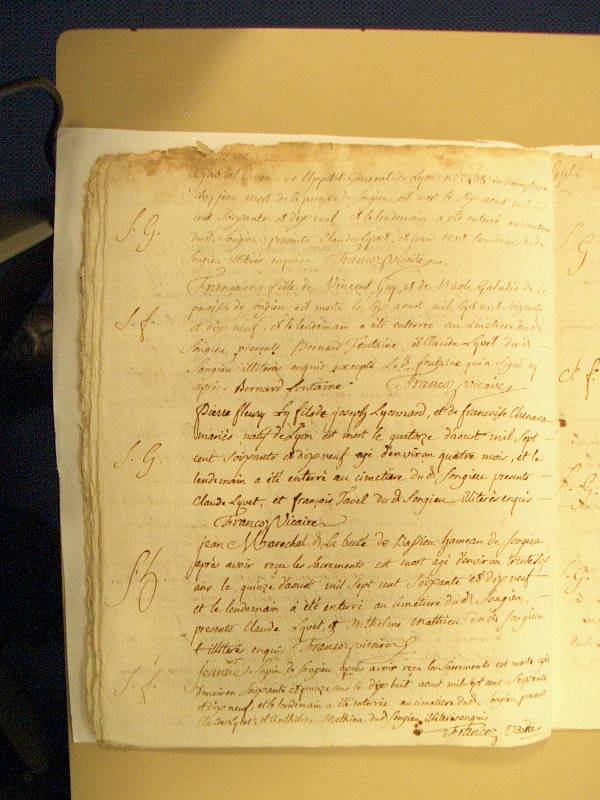 de l'hopital General de Lyon
chez jean mort de la paroisse de Songieu est mort le Sept aoust mil Sept
cent Soixante et dix neuf et le lendemain a été enterré au cimetiere
S. G.
dud. Songieu presents Claude Lyvet, et jean mort laboureurs dud.
Songieu illiteres enquis. Francoz Vicaire
Françoise fille de Vincent Gay, et de
S. f.
paroisse de Songieu est morte le Sept aoust mil Sept cent Soixante
et dix neuf, et le lendemain a été enterrée au cimetiere du d.
Songieu presents Bernard fontaine et Claude Lyvet du d.
Songieu illiteres enquis excepté Led. fontaine qui a Signé cy
aprés. Bernard fontaine Francoz vicaire
Pierre fleury fils de joseph Lyonnard, et de francoise Chenava
mariés natif de Lyon est mort le quatorze daoust mil Sept
S. G.
cent Soixante et dix neuf agé d'environ quatre mois, et le
lendemain a été enterré au cimetiere du d. Songieu presents
Claude Lyvet, et françois Tavel du d. Songieu illiterés enquis
Francoz Vicaire
jean Marechal d. La boule de Bassieu hameau de Songieu
aprés avoir recu les Sacrements est mort agé d'environ trente six
ans le quinze d'aoust mil Sept cent Soixante et dix neuf
et le lendemain à été enterré au cimetiere du d. Songieu,
presents Claude Lyvet, et Anthelme Mathieu du d. Songieu
illiterés enquis Francoz vicaire
jeanne Sapin de Songieu aprés avoir recu les Sacrements est morte agée
S. f.
d'environ Soixante et quinze ans le dix huit aoust mil Sept cent Soixante
et dix neuf, et le lendemain a été enterrée au cimetiere dud. Songieu, presents
Claude Lyvet, et Anthelme Mathieu dud. Songieu illiterés enquis
Francoz Vicaire
S. G.
S. f.
S. G.
S. G.